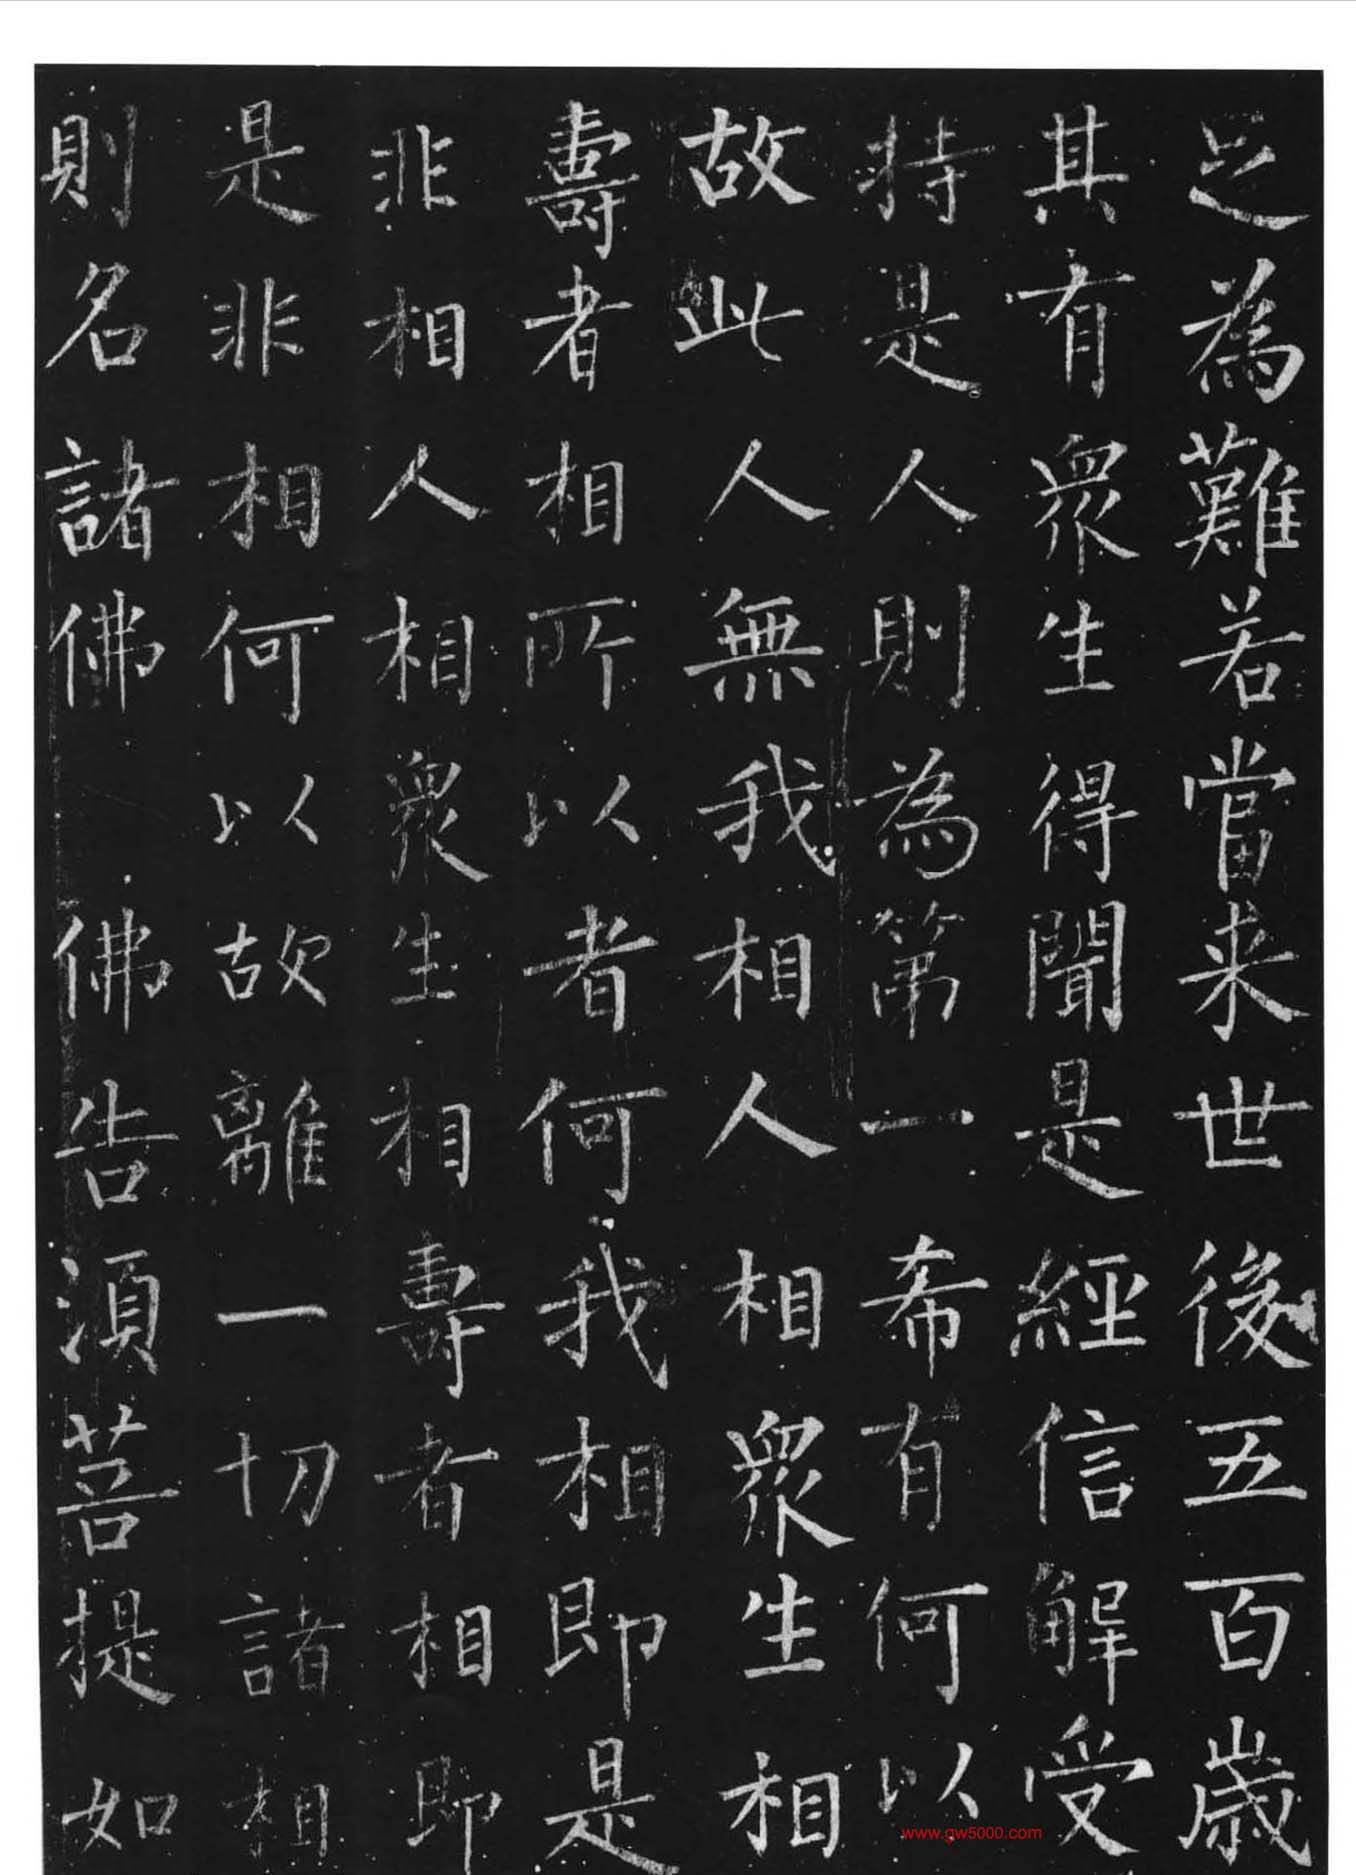 足為難若當来世後五百歲
其有衆生得聞是經信解受
持是人則為第一希有何以
故此人無我相人相衆生相
壽者相所以者何我相即是
非相人相衆生相壽者相即
是非相何以故離一切諸相
則名諸佛 佛告須菩提如
www.gw5000.com